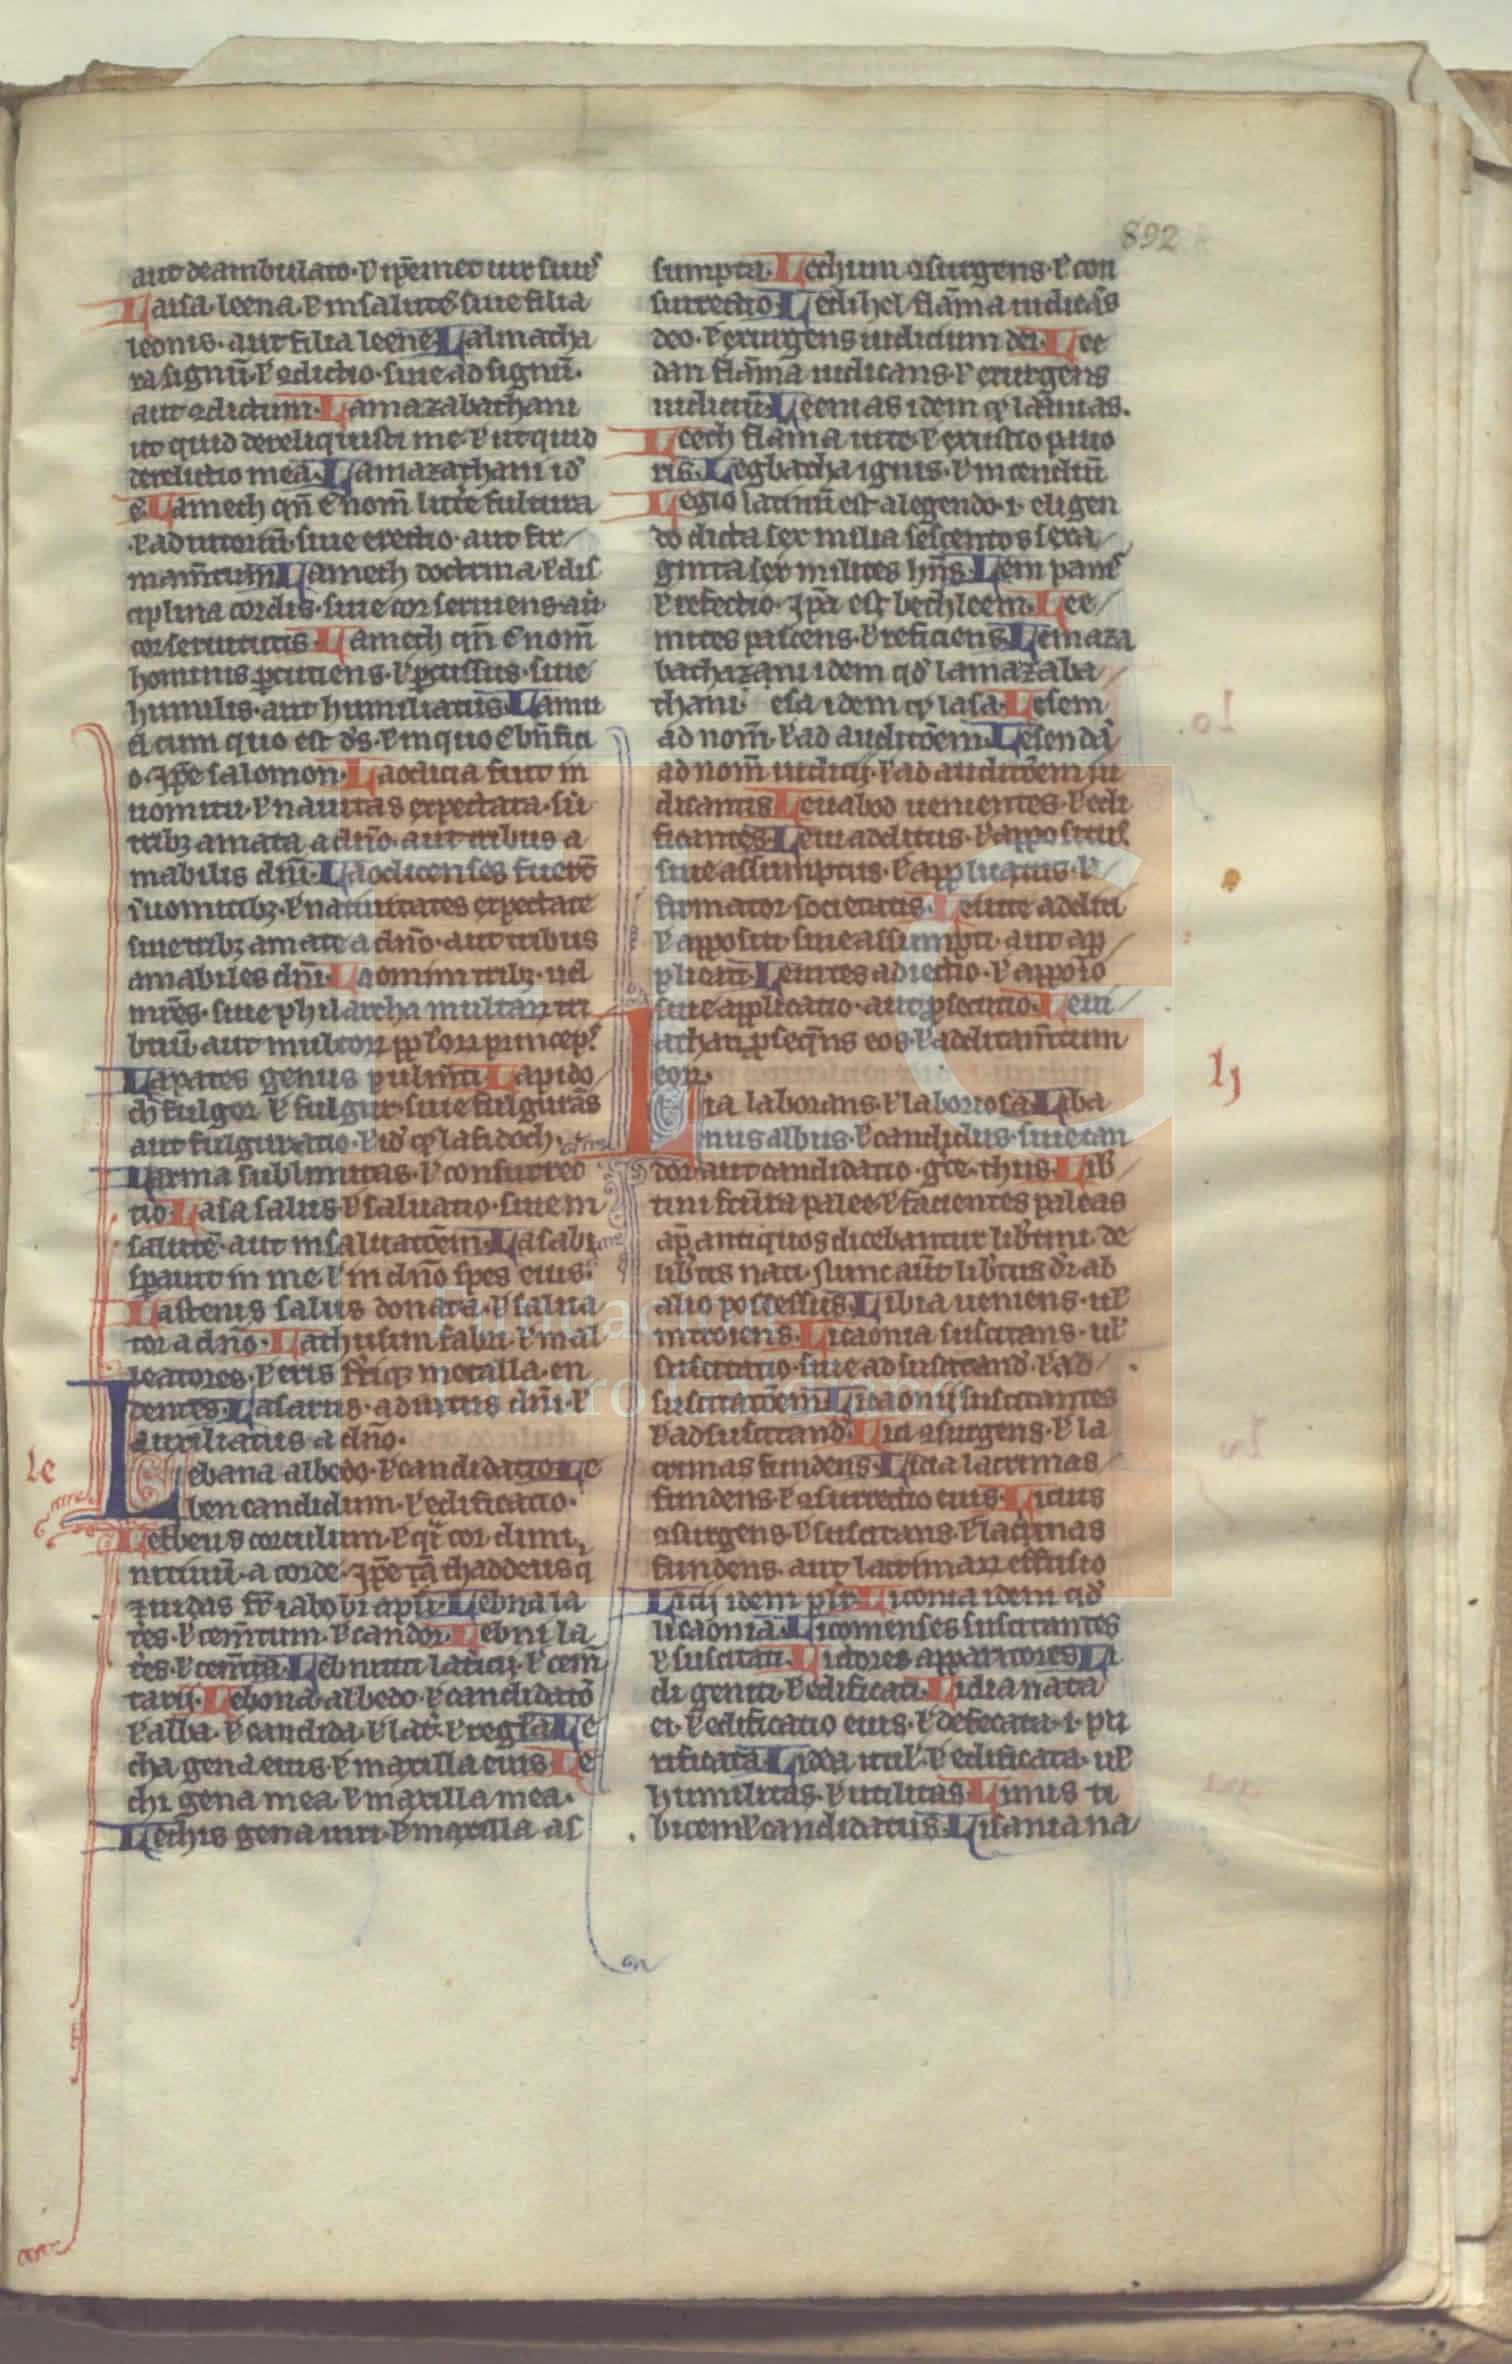 892
aut deambulato· ł ip̄emet uir suus
Laisa leena· ł in salutē siue filia
leonis· aut filia leene· Lalmacha
ra signū· ł ꝯdictio· siue ad signū·
aut ꝯdictum· Lamazabathani
ut quid dereliquisti me· ł ut quid
derelictio mea· Lamazathani id'
ē· Lamech qn̄ ē nom̄ litt̄e fultura
· ł adiutoriū· siue erectio· aut fir
mam̄tum Lamech doctrina ł dis
ciplina cordis· siue cor seruiens aū
cor seruitutis· Lamech qn̄ ē nom̄
hominis ꝑcutiens· ł ꝑcussus· siue
humilis· aut humiliatus· Lamu
el cum quo est d's· ł in quo ē
o· ip̄e salomon· Laodicia fuit in
uomitu· ł natiuitas expectata· siū
tribꝫ amata a dn̄o· aut tribus a
mabilis dn̄i· Laodicenses fuerūt
ī uomitibꝫ· ł natiuitates expectate
siue tribꝫ amate a dn̄o· aut tribus
amabiles dn̄i· Laomim tribꝫ· uel
mr̄es· siue philarcha multaꝝ tri
buū· aut multoꝝ pploꝝ princeps
Lapates genus pulm̄ti· Lapido
ch fulgor ł fulgur· siue fulgurās
aut fulguratio· ł id' qđ lafidoch·
Larma sublimitas· ł consurrec
tio· Lasa salus ł saluatio· siue in
salutē· aut in saluatōem· Lasabi
sp̄auit in me· ł in dn̄o spes eius·
Lastenis salus donata· ł salua
tor a dn̄o· Lathusim fabri· ł mal
leatores· ł eris ferriqꝫ metalla· en
dentes· Lasarus· adiutus dn̄i· ł
auxiliatus a dn̄o·
le
Lebana albedo· ł candidatio· Le
ben candidum· ł edificatio·
Lebbeus corculum· ł qī cor dimi
nitiuū· a corde· ip̄e tā thaddeus q
ꝫ iudas fr̄ iacobi apl̄i· Lebna la
tes· ł cem̄tum· ł candor· Lebni la
tes· ł cem̄ta· Lebnitici· ł cem̄
tarii· Lebona· albedo· ł candidatō
ł alba· ł candida· ł lat̄· ł regia· Le
cha gena eius· ł maxilla eius· Le
chi gena mea· ł maxilla mea·
Lechis gena uiri· ł maxilla as
sumpta· Lechum ꝯsurgens· ł con
surrectio· Ledihel flāma iudicās
deo· ł exurgens iudicium dei· Lee
dan flāma iudicans· ł exurgens
iudiciū· Leemas idem qđ lamas·
Leech flāma uite· ł exustio puo
ris· Legbacha ignis· ł incendiū
Legio latinū est a legendo· i· eligen
do dicta sex milia sescentos sexa
ginta sex milites hn̄s· Lem panis
ł refectio· ip̄a est bethleem· Lee
mites pascens· ł reficiens· Lemaza
bachazani idem qđ lamazaba
thani· esa idem qđ lasa· Lesem
ad nom̄· ł ad auditōem· Lesendā
ad nom̄ iudicij· ł ad auditōem iu
dicantis· Leuabod uenientes· ł edi
ficantes· Leui additus· ł appositus
siue assumptus· ł applicatus· ł
firmator societatis· Leuite additi
ł appositi siue assumpti· aut ap
plicati· Leuites adiectio· ł appoīo
siue applicatio· aut ꝑsecutio· Leui
athan ꝑseqn̄s eos· ł additam̄tum
eoꝝ·
lj
Lia laborans· ł laboriosa· Liba
nus albus· ł candidus· siue can
dor aut candidatio· gr̄e· thus· Lib̄
tini palee· ł facientes paleas
ap̄ antiquos dicebantur lib̄tini· de
lib̄tis nati· Nunc aūt lib̄tus dr̄ ab
alio possessus· Libia ueniens· ul'
introiens· Licaonia suscitans· ul'
suscitatio· siue ad suscitand'· ł ad
suscitatōem· Licaonij suscitantes
ł ad suscitand'· Lici ꝯsurgens· ł la
crimas fundens· Licia lacrimas
fundens· ł ꝯsurrectio eius· Licius
ꝯsurgens· ł suscitans· ł lacrimas
fundens· aut lacrimaꝝ effusio
Licij idem pl̄r· Liconia idem qđ
licaonia· Liconienses suscitantes
ł suscitati· Lictores apparitores· Li
di geniti· ł edificati· Lidia nata
ei· ł edificatio eius· ł defecata· i· pu
rificata· Lidda utił· ł edificata· ul'
humilitas· ł utilitas· Linus ti
bicem· ł candidatus· Lisania na